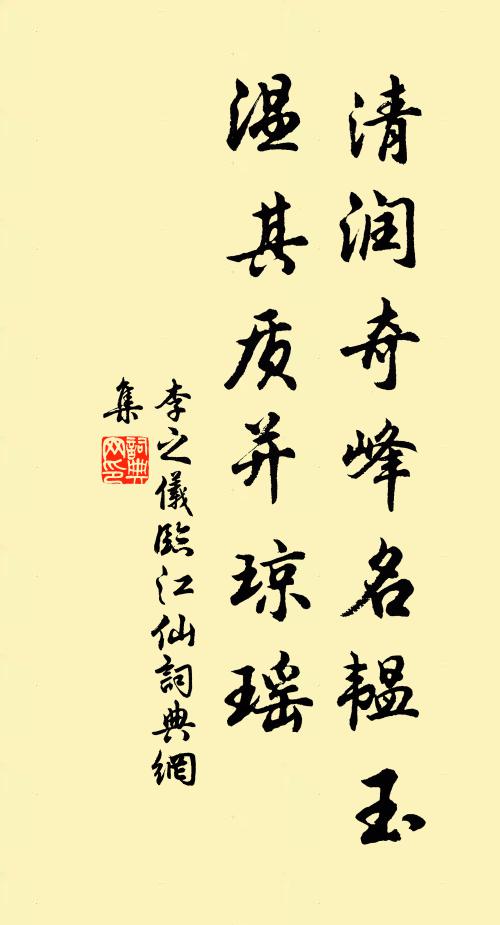 清润奇峰名韫玉
温其质并琼瑶
李之儀臨江仙詞典網
集
詞典
网印